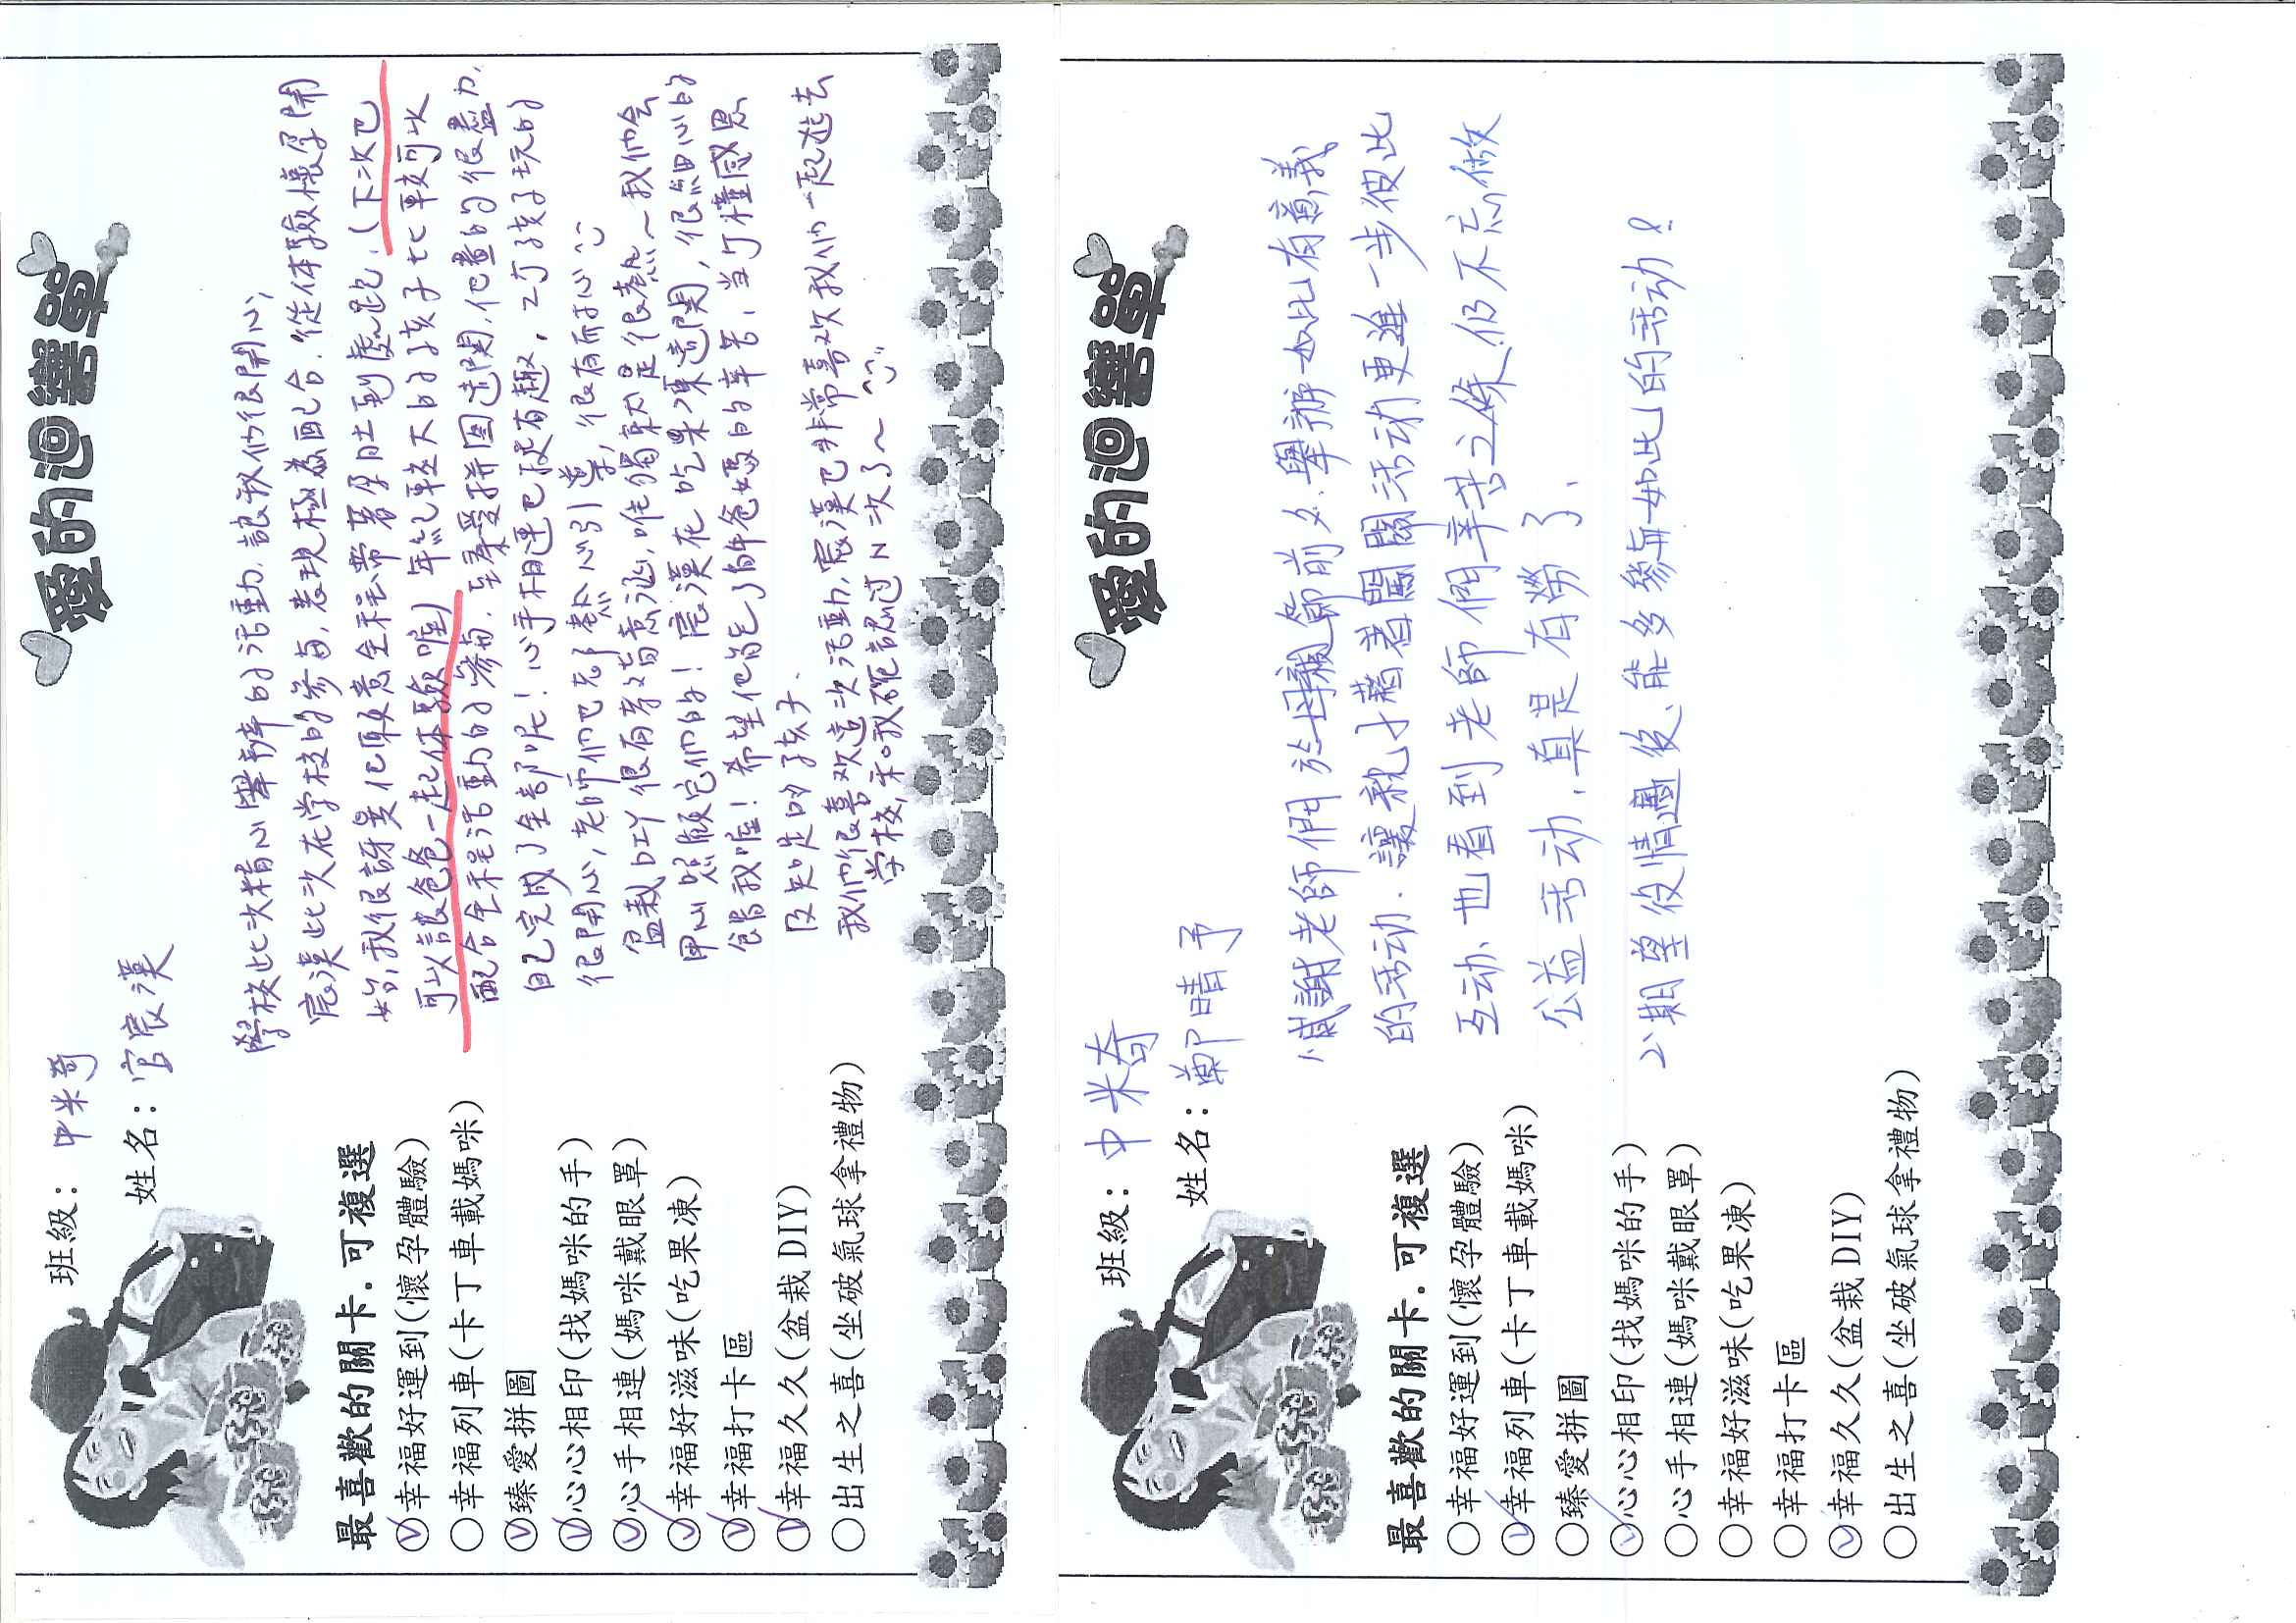 愛的迴響單
班級：中米奇
姓名：官宸漢
最喜歡的關卡．可複選
幸福好運到(懷孕體驗)
幸福列車(卡丁車載媽咪)
臻愛拼圖
心心相印(找媽咪的手)
心手相連(媽咪戴眼罩)
幸福好滋味(吃果凍)
幸福打卡區
幸福久久(盆栽DIY)
出生之喜(坐破氣球拿禮物)
學校此次精心舉辦的活動，讓我們很開心，
宸漢此次在学校的參与，表現極為配合，從体驗懷孕開
始，我很訝異他願意全程带著孕肚到處跑，(下次巴
可以讓爸爸一起体驗喔) 年紀較大的孩子比較可以
配合全程活動的參与，至臻愛拼图這関，他盡的很盡力，
自己完成了全部呢！心手相連也很有趣，2个孩子玩的
很開心，老師們也充了熱心引導，很有耐心
盆栽DIY很有教育意涵，唯獨夏天是很熱～我們会
用心照顧它們的！宸漢在吃果凍這関，很細心的
餵我喔！希望他能了解爸媽的辛苦，当个懂感恩
及知足的孩子、
我們很喜欢這次活動，宸漢也非常喜欢我們一起進去
学校，和我不記過N次了～
愛的迴響單
班級：中米奇
姓名：鄭晴予
最喜歡的關卡．可複選
幸福好運到(懷孕體驗)
幸福列車(卡丁車載媽咪)
臻愛拼圖
心心相印(找媽咪的手)
心手相連(媽咪戴眼罩)
幸福好滋味(吃果凍)
幸福打卡區
幸福久久(盆栽DIY)
出生之喜(坐破氣球拿禮物)
1、感謝老師們於母親節前夕、舉辦如此有意義
的活动．讓親子藉著闖關活动更進一步彼此
互动、也看到老師們辛苦之餘、仍不忘做
公益活动，真是有勞了、
2、期望役情過後、能多參與如此的活动！